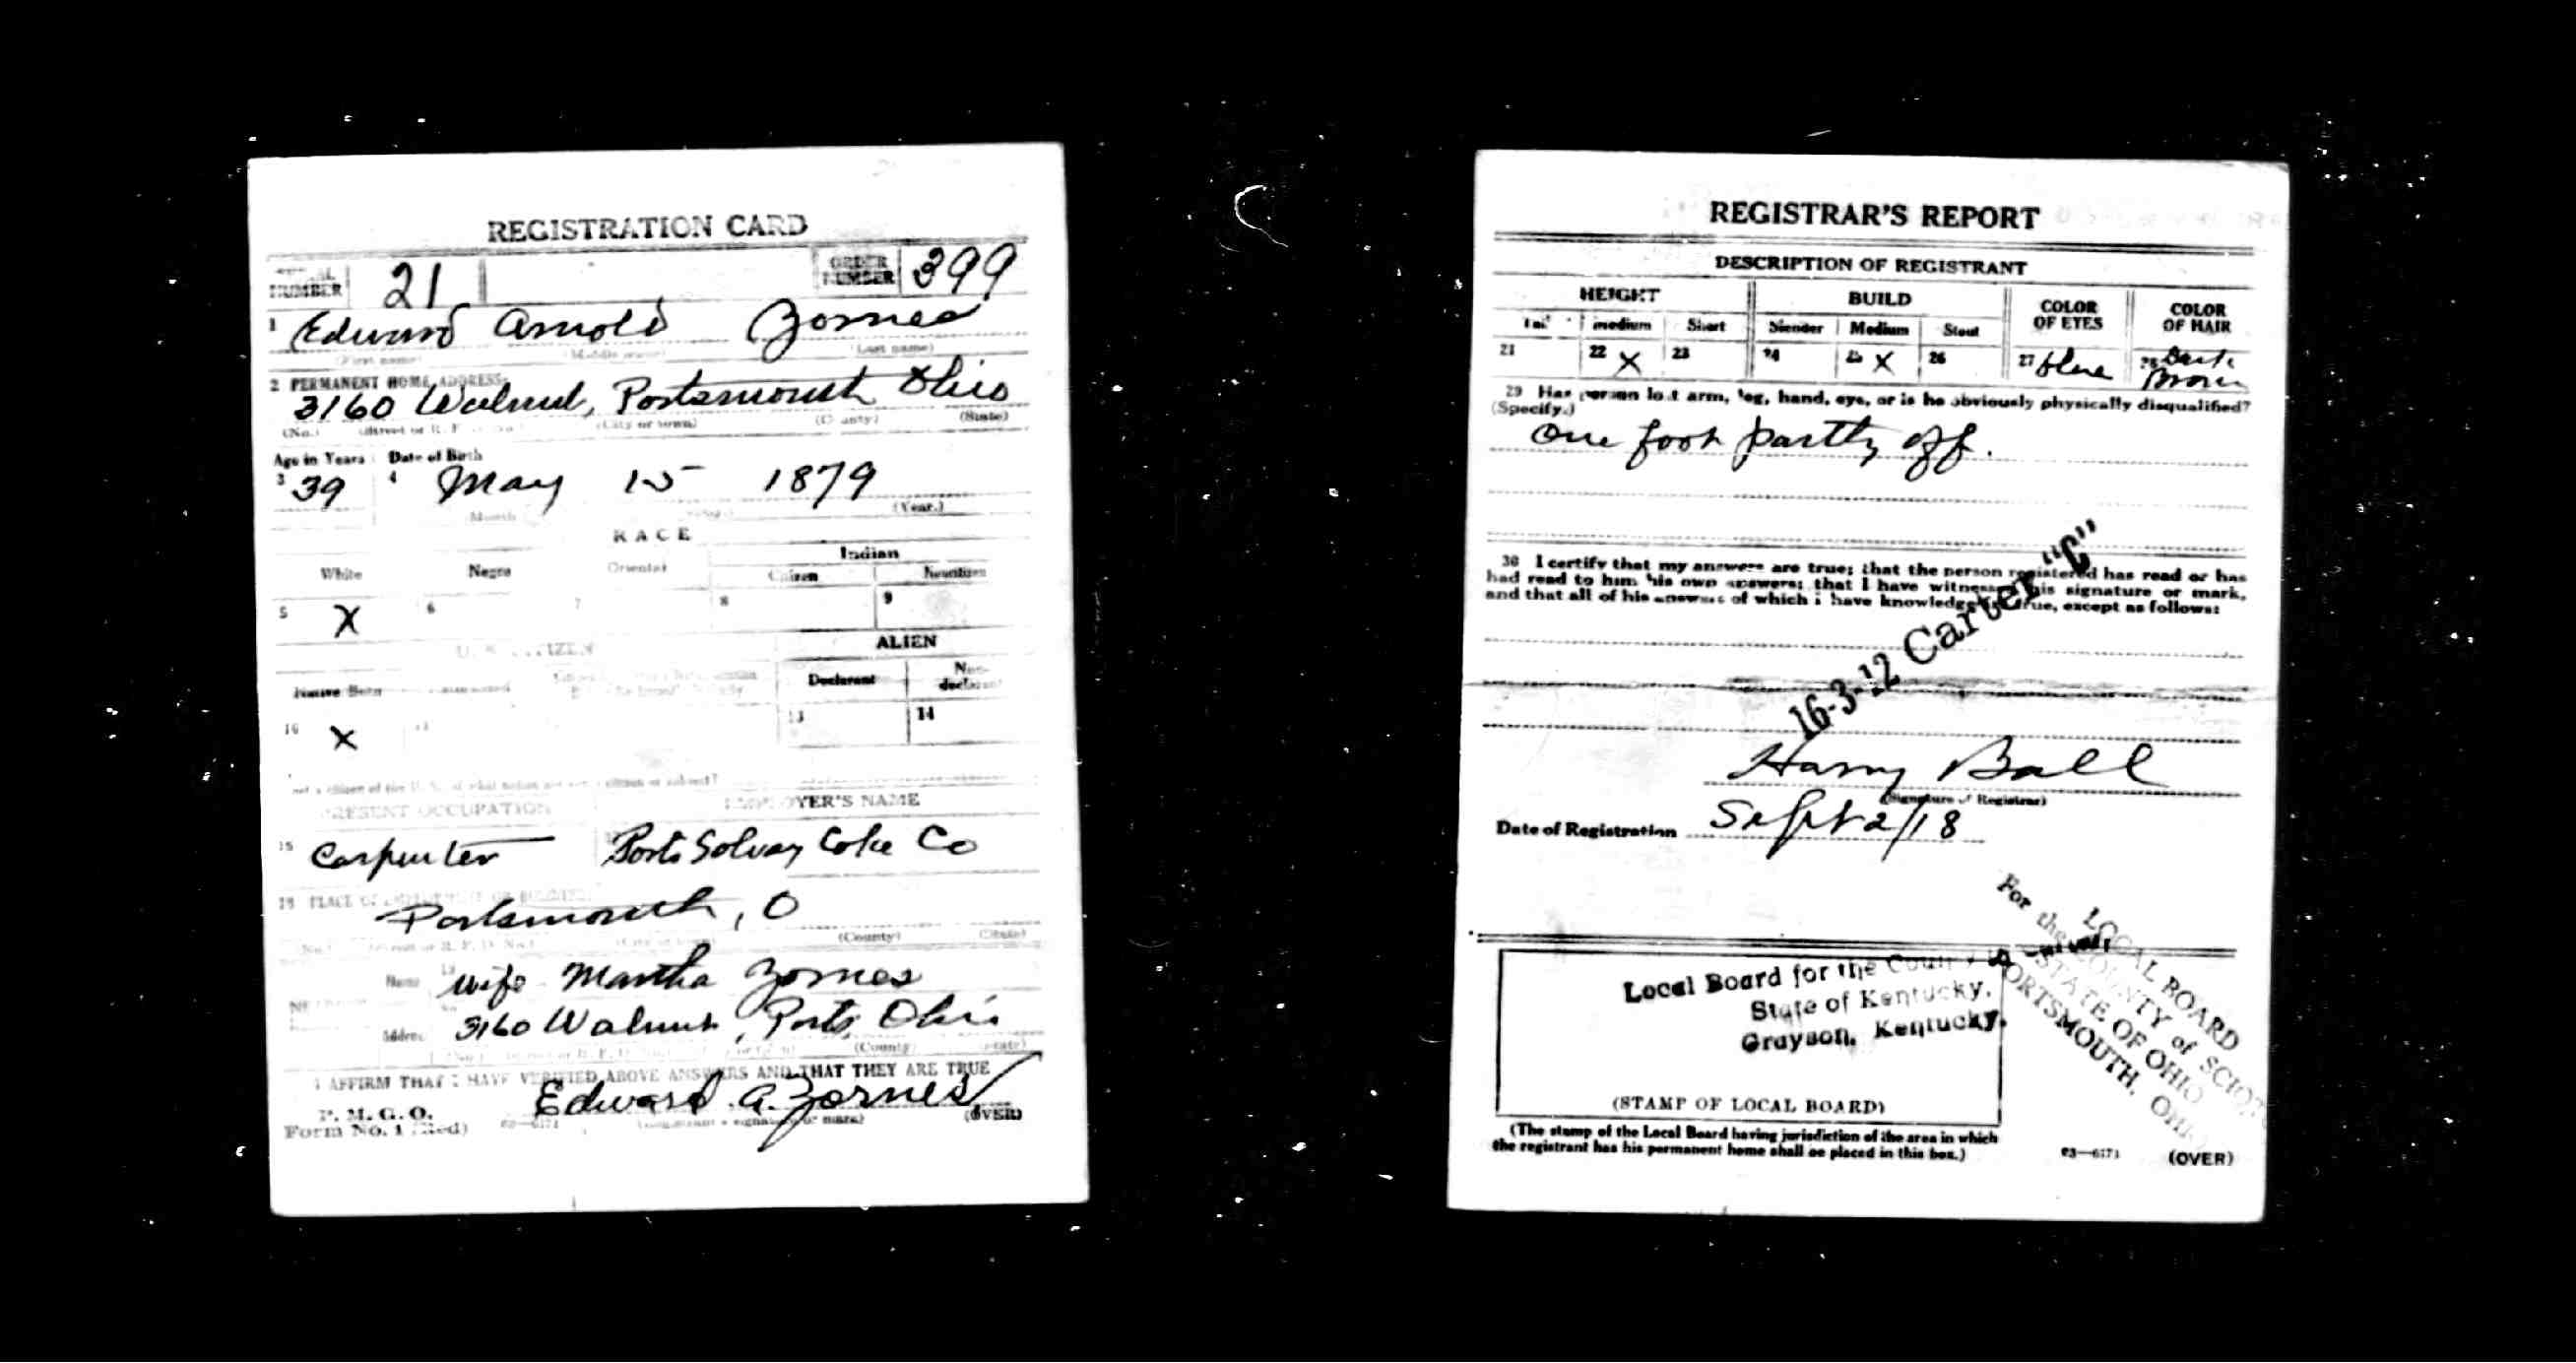 REGISTRATION CARD
NUMBER 21 ORDER NUMBER 399
1 Edward Arnold Zornes
(First name) (Middle name) (Last name)
2 PERMANENT HOME ADDRESS:
3160 Walnut, Portsmouth Ohio
(No.) (City or town) (County) (State)
Age in Years Date of Birth
3 39 4 May 15 1879
(Month) (Year.)
RACE
White Negro Oriental Indian
Citizen Noncitizen
5 X 6 7 8 9
U. S. CITIZEN ALIEN
Native Born Declarant Non-declarant
10 X 11 13 14
PRESENT OCCUPATION EMPLOYER'S NAME
Carpenter Ports Solvay Coke Co
Portsmouth, O
(County) (State)
Name wife Martha Zornes
Address 3160 Walnut, Ports Ohio
(County) (State)
I AFFIRM THAT I HAVE VERIFIED ABOVE ANSWERS AND THAT THEY ARE TRUE
P. M. G. O.
Form No. 1 (Red) 03—6171 Edward A. Zornes (OVER)
REGISTRAR'S REPORT
DESCRIPTION OF REGISTRANT
HEIGHT BUILD COLOR OF EYES COLOR OF HAIR
Tall medium Short Slender Medium Stout
21 22 X 23 24 25 X 26 27 blue 28 Dark Brown
29 Has person lost arm, leg, hand, eye, or is he obviously physically disqualified?
(Specify.)
One foot partly off.
30 I certify that my answers are true; that the person registered has read or has
had read to him his own answers; that I have witnessed his signature or mark,
and that all of his answers of which I have knowledge are true, except as follows:
16-3-12 Carter "C"
Harry Ball
(Signature of Registrar)
Date of Registration Sept 2/18
Local Board for the County
State of Kentucky,
Grayson, Kentucky.
(STAMP OF LOCAL BOARD)
LOCAL BOARD
For the COUNTY of SCIOTO
STATE OF OHIO
PORTSMOUTH, OHIO
(The stamp of the Local Board having jurisdiction of the area in which
the registrant has his permanent home shall be placed in this box.)
03—6171 (OVER)